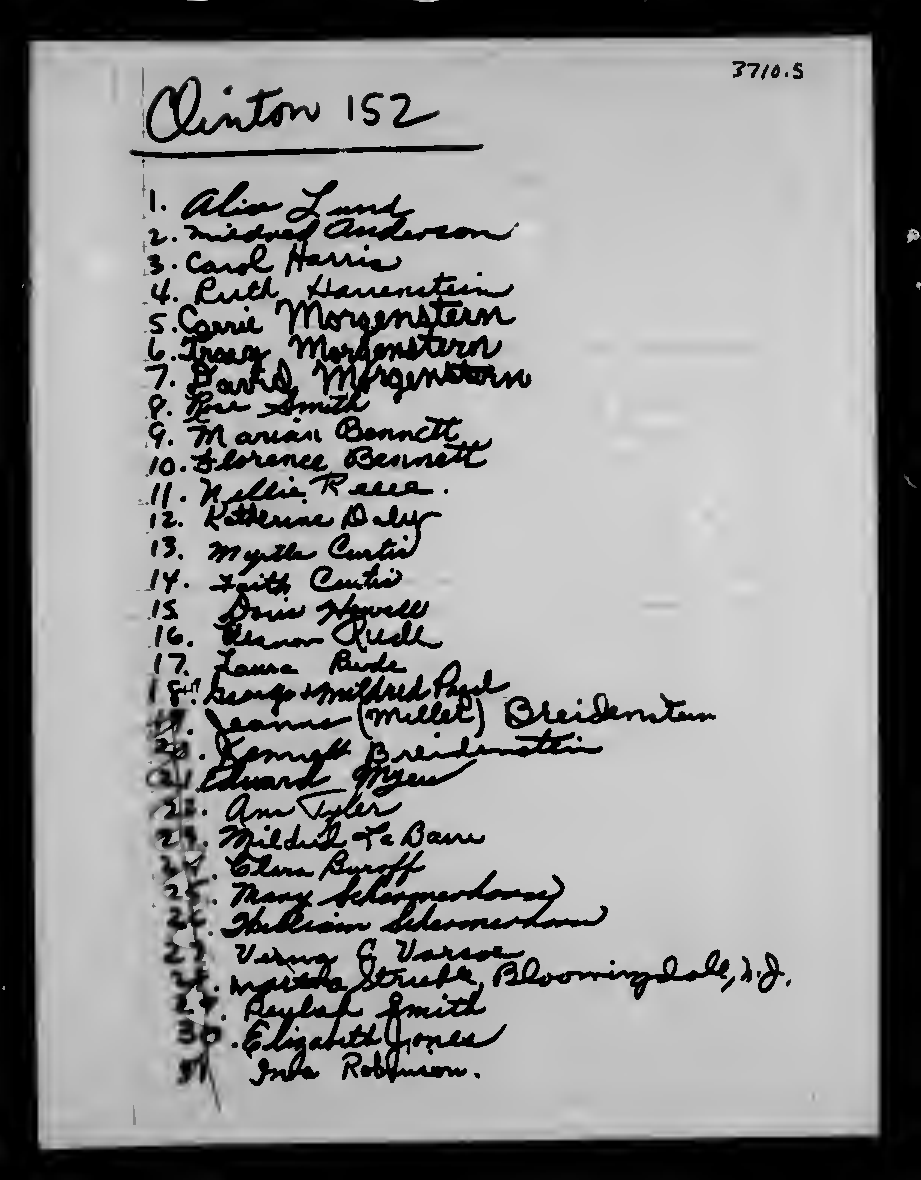 3710.5
Clinton 152
1. Alice Lund
2. Mildred Anderson
3. Carol Harris
4. Ruth Harrenstein
5. Carrie Morgenstern
6. Tracy Morgenstern
7. David Morgenstern
8. Rose Smith
9. Marian Bennett
10. Florence Bennett
11. Nellie Reese.
12. Katherine Daly
13. Myrtle Curtis
14. Faith Curtis
15 Doris Howell
16. Vernon
17. Laura
18 George & Mildred Paul
19. Jeanne (Miller) Breidenstein
20. Kenneth Breidenstein
21 Edward Myers
22. Ann Tyler
23. Mildred La Barre
24. Clara Buroff
25. Mary Schermerhorn
26. William Schermerhorn
27. Verna
28. Martha Struble, Bloomingdale, N.J.
29. Beulah Smith
30. Elizabeth Jones
31 Robinson.